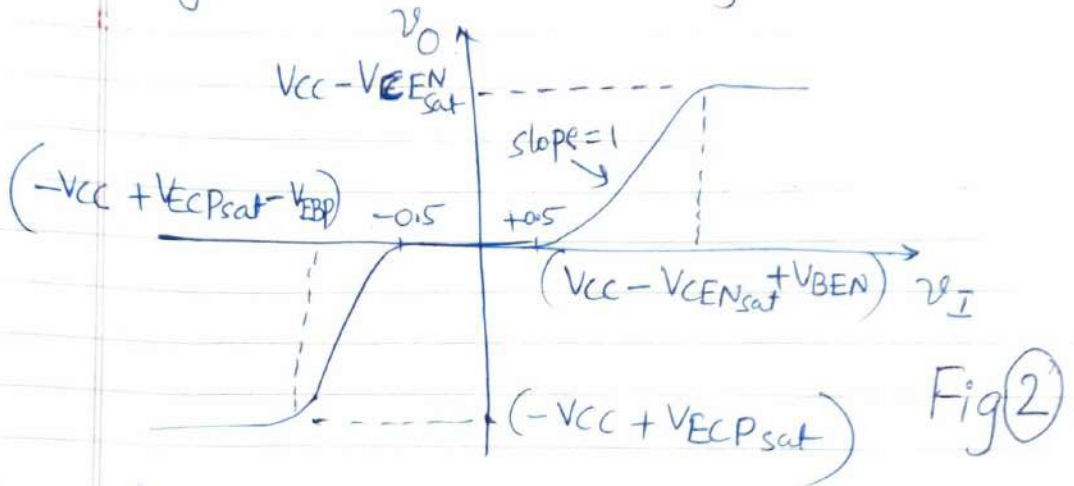 v_O
VCC - VCEN_sat
slope=1
(-VCC + VECPsat - VEBP)
-0.5
+0.5
(VCC - VCEN_sat + VBEN)
v_I
(-VCC + VECPsat)
Fig 2